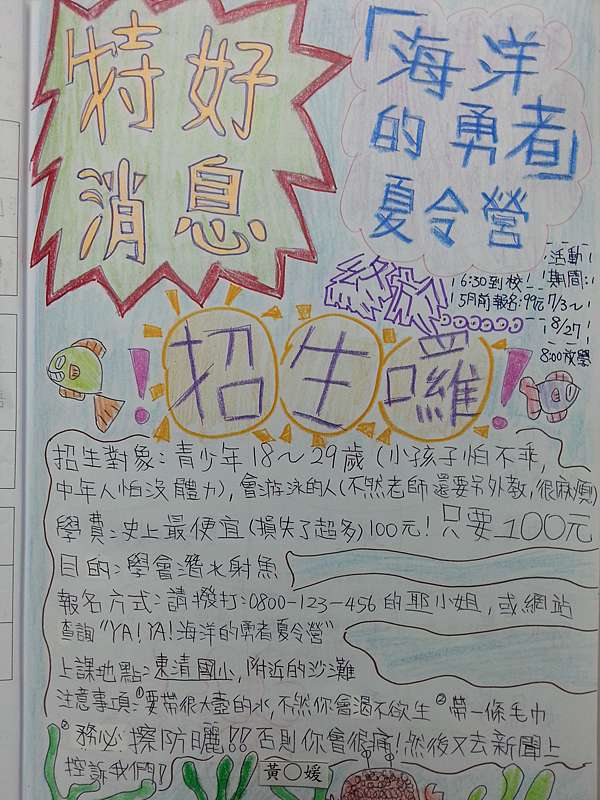 特好
消息
「海洋
的勇者」
夏令營
活動
期間:
7/3～
8/27
6:30到校!
5月前報名:99元
8:00放學
終於
招生囉!
招生對象:青少年18～29歲(小孩子怕不乖,
中年人怕沒體力),會游泳的人(不然老師還要另外教,很麻煩)
學費:史上最便宜(損失了超多)100元!只要100元
目的:學會潛水射魚
報名方式:請撥打:0800-123-456的耶小姐,或網站
查詢"YA!YA!海洋的勇者夏令營"
上課地點:東清國小,附近的沙灘
注意事項:①要帶很大壺的水,不然你會渴不欲生 ②帶一條毛巾
③務必擦防曬!!否則你會很痛!然後又去新聞上
控訴我們!
黃○媛